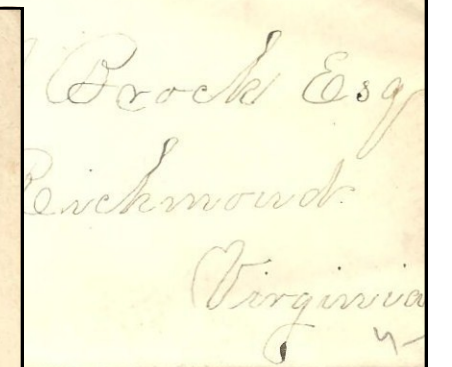 Brock Esq
Richmond
Virginia